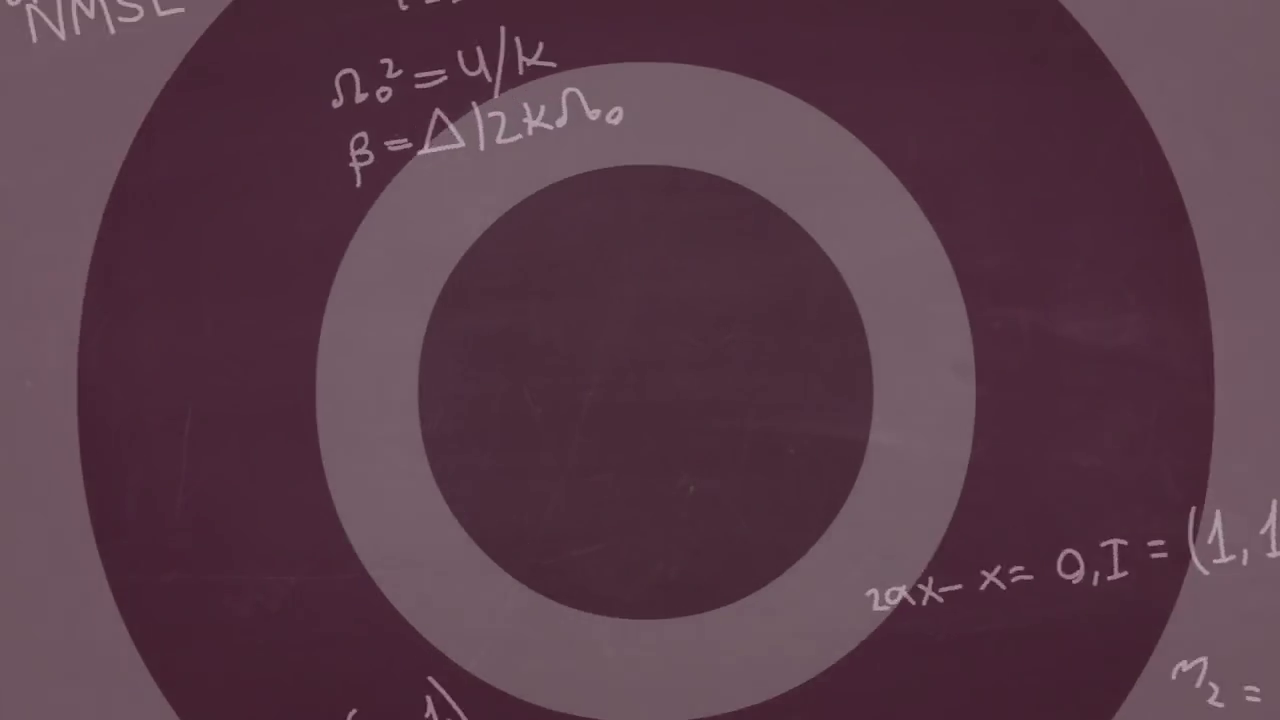 NMSL
Ω₀² = 4/k
β = Δ/2kΩ₀
2αx - x = 0, I = (1, 1
m₂ =